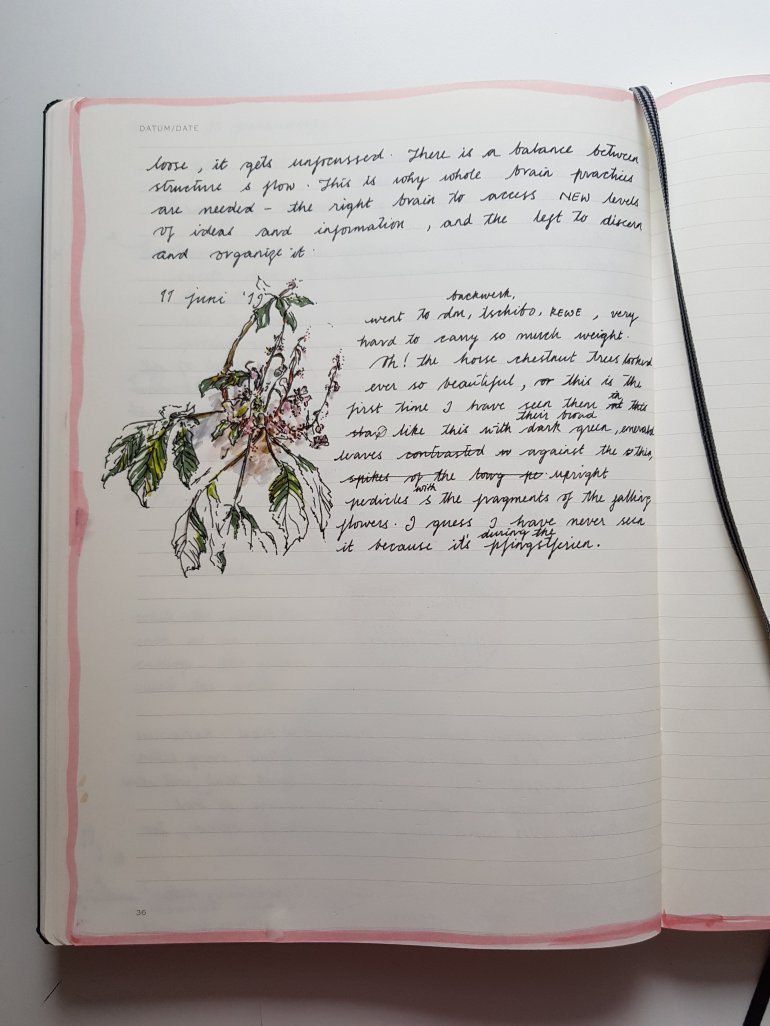 DATUM/DATE
loose, it gets unfocussed. There is a balance between
structure & flow. This is why whole brain practices
are needed – the right brain to access NEW levels
of ideas and information, and the left to discern
and organize it.
11 juni '19
backwerk,
went to dm, Tschibo, REWE, very
hard to carry so much weight.
Oh! the horse chestnut trees looked
ever so beautiful, or this is the
first time I have seen them at this
their broad
stage like this with dark green, emerald
leaves contrasted against the
spikes of the long upright
with
pedicles & the fragments of the falling
flowers. I guess I have never seen
during the
it because it's pfingstferien.
36